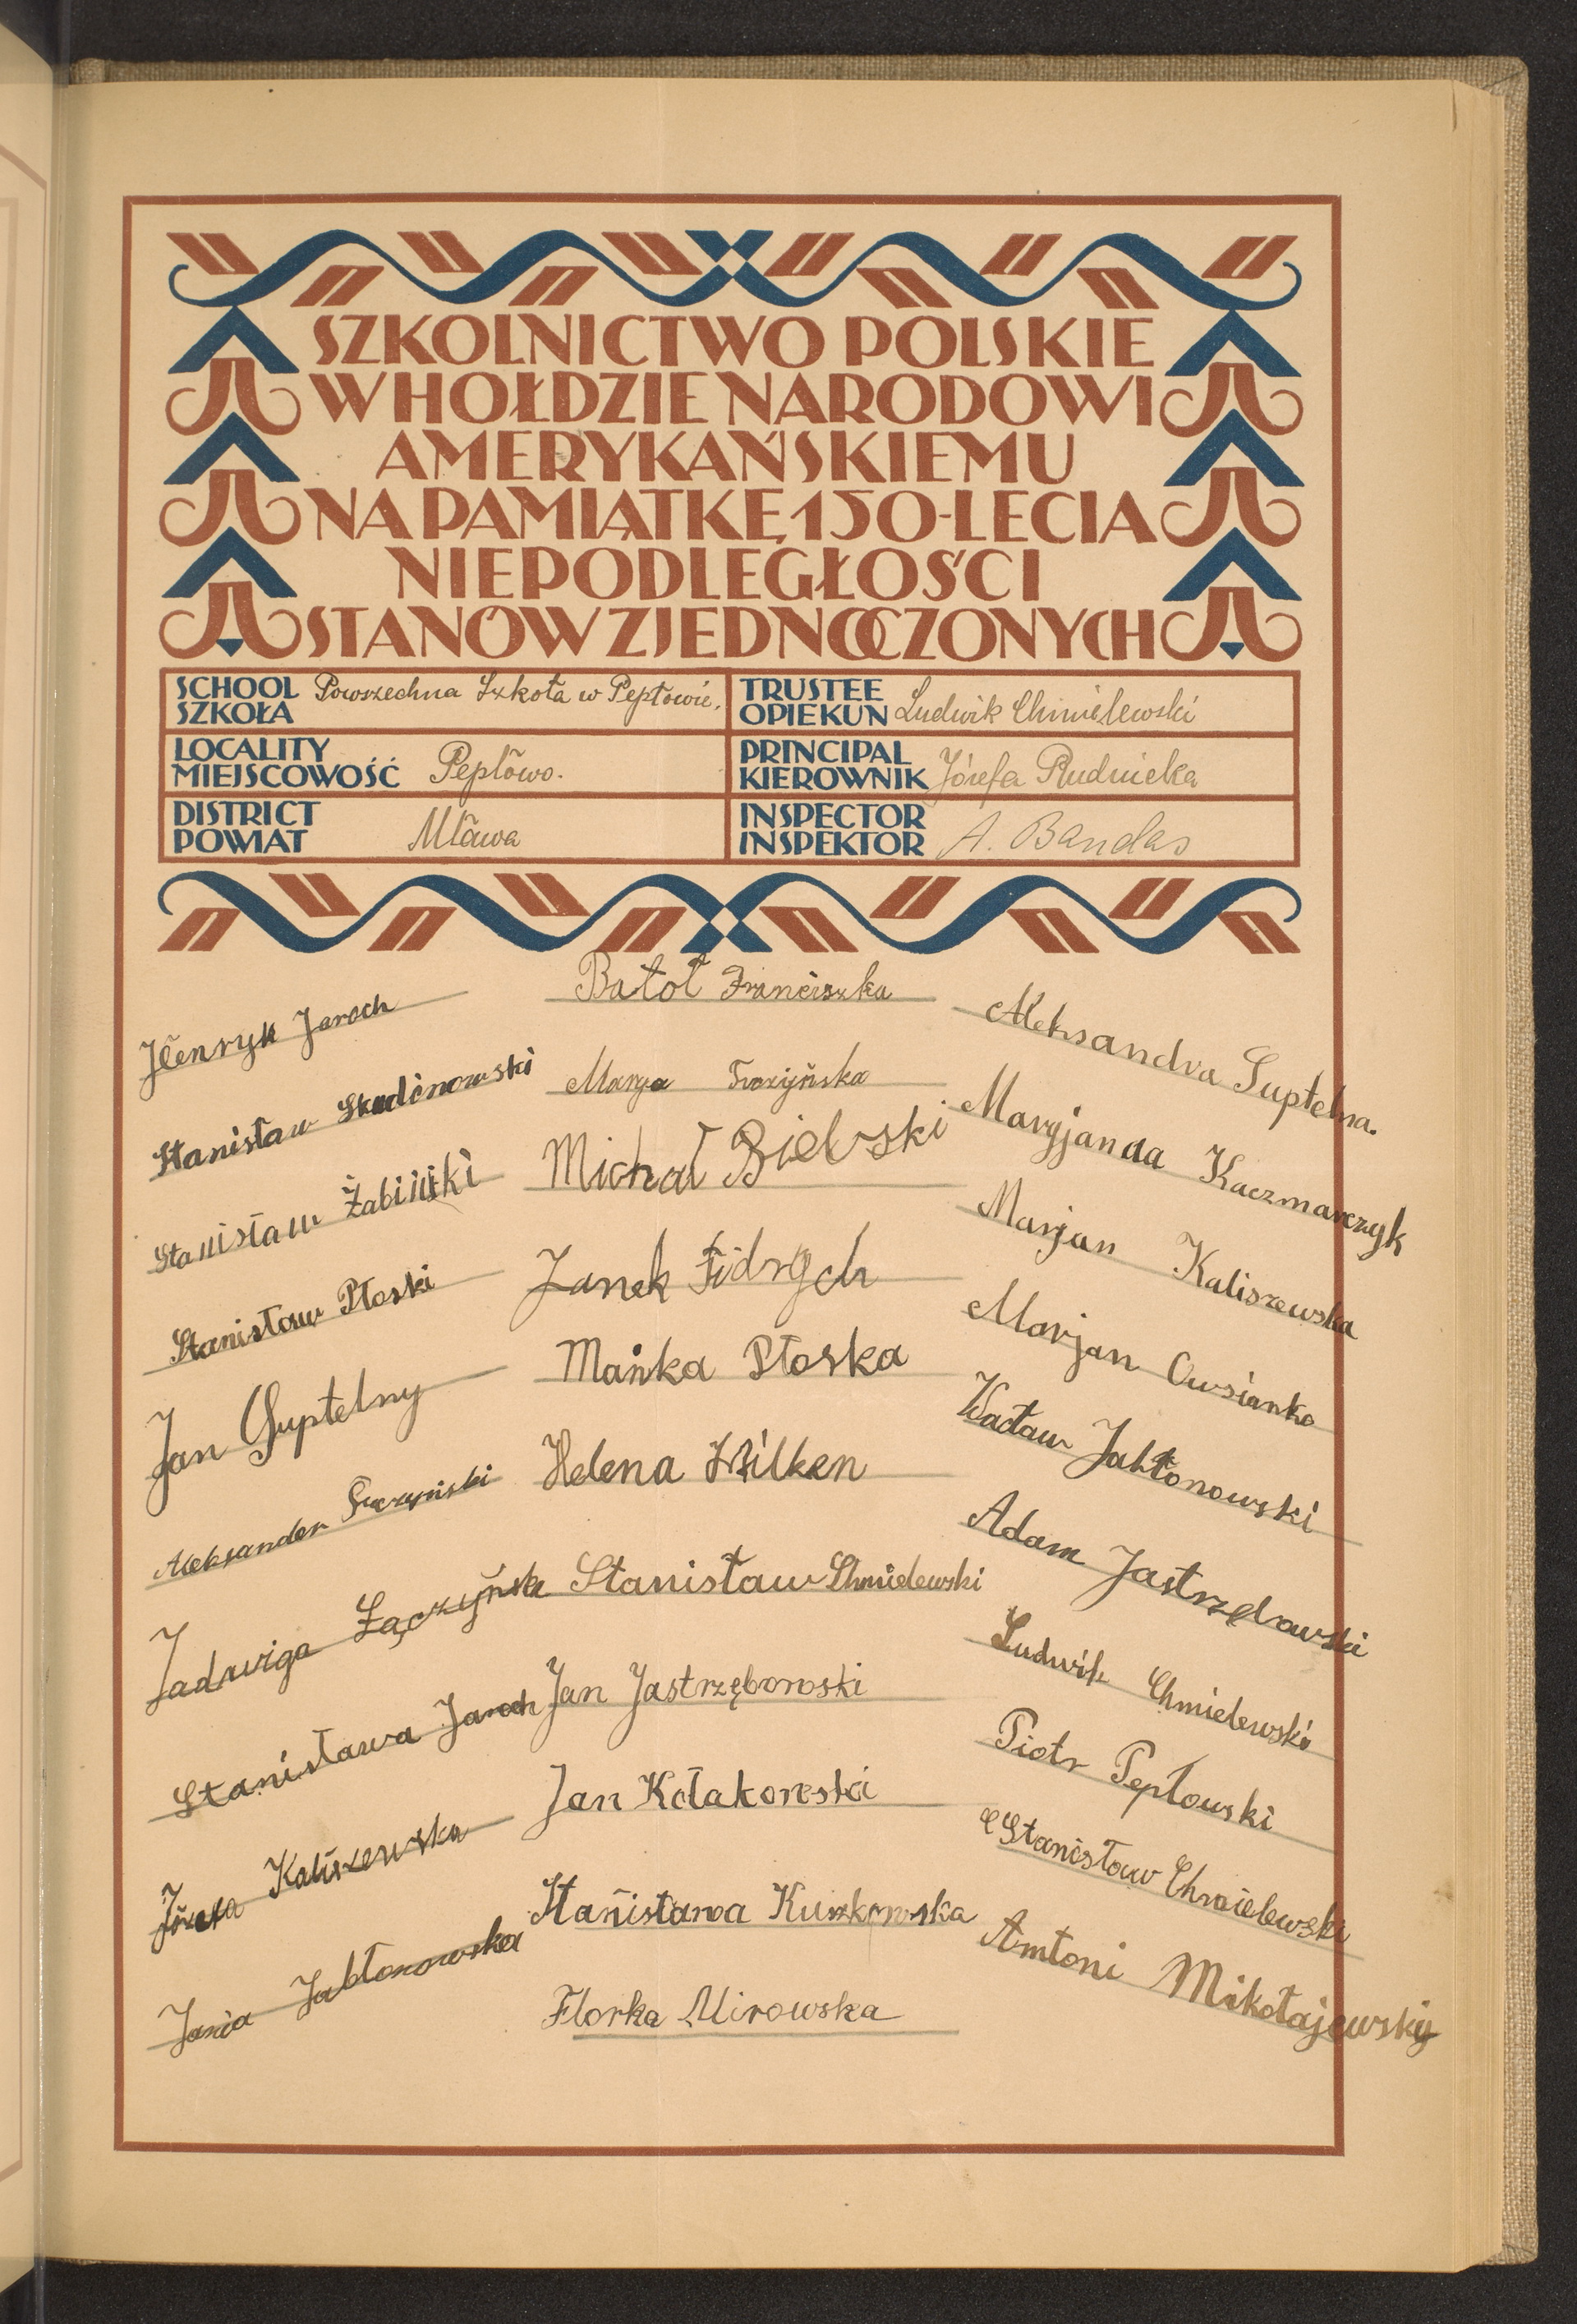 SZKOLNICTWO POLSKIE
W HOŁDZIE NARODOWI
AMERYKAŃSKIEMU
NA PAMIĄTKĘ 150-LECIA
NIEPODLEGŁOŚCI
STANÓW ZJEDNOCZONYCH
SCHOOL
SZKOŁA
Powszechna Szkoła w Pepłowie.
TRUSTEE
OPIEKUN
Ludwik Chmielewski
LOCALITY
MIEJSCOWOŚĆ
Pepłowo.
PRINCIPAL
KIEROWNIK
Józefa Rudnicka
DISTRICT
POWIAT
Mława
INSPECTOR
INSPEKTOR
A. Bandas
Henryk Jaroch
Stanisław Skudinowski
Stanisław Żabiński
Stanisław Płoski
Jan Suptelny
Aleksander
Jadwiga Łączyńska
Stanisława Jaroch
Józefa Kaliszewska
Jania Jabłonowska
Batot Franciszka
Marya
Michał Bielski
Janek Fidrych
Mańka Płoska
Helena Wilken
Stanisław Chmielewski
Jan Jastrzębowski
Jan Kołakowski
Stanisława Kuszkowska
Florka Mirowska
Aleksandra Suptelna.
Maryjanda Kaczmarczyk
Marjan Kaliszewska
Marjan Owsianko
Wacław Jabłonowski
Adam Jastrzębowski
Ludwik Chmielewski
Piotr Pepłowski
Stanisław Chmielewski
Amtoni Mikołajewsky